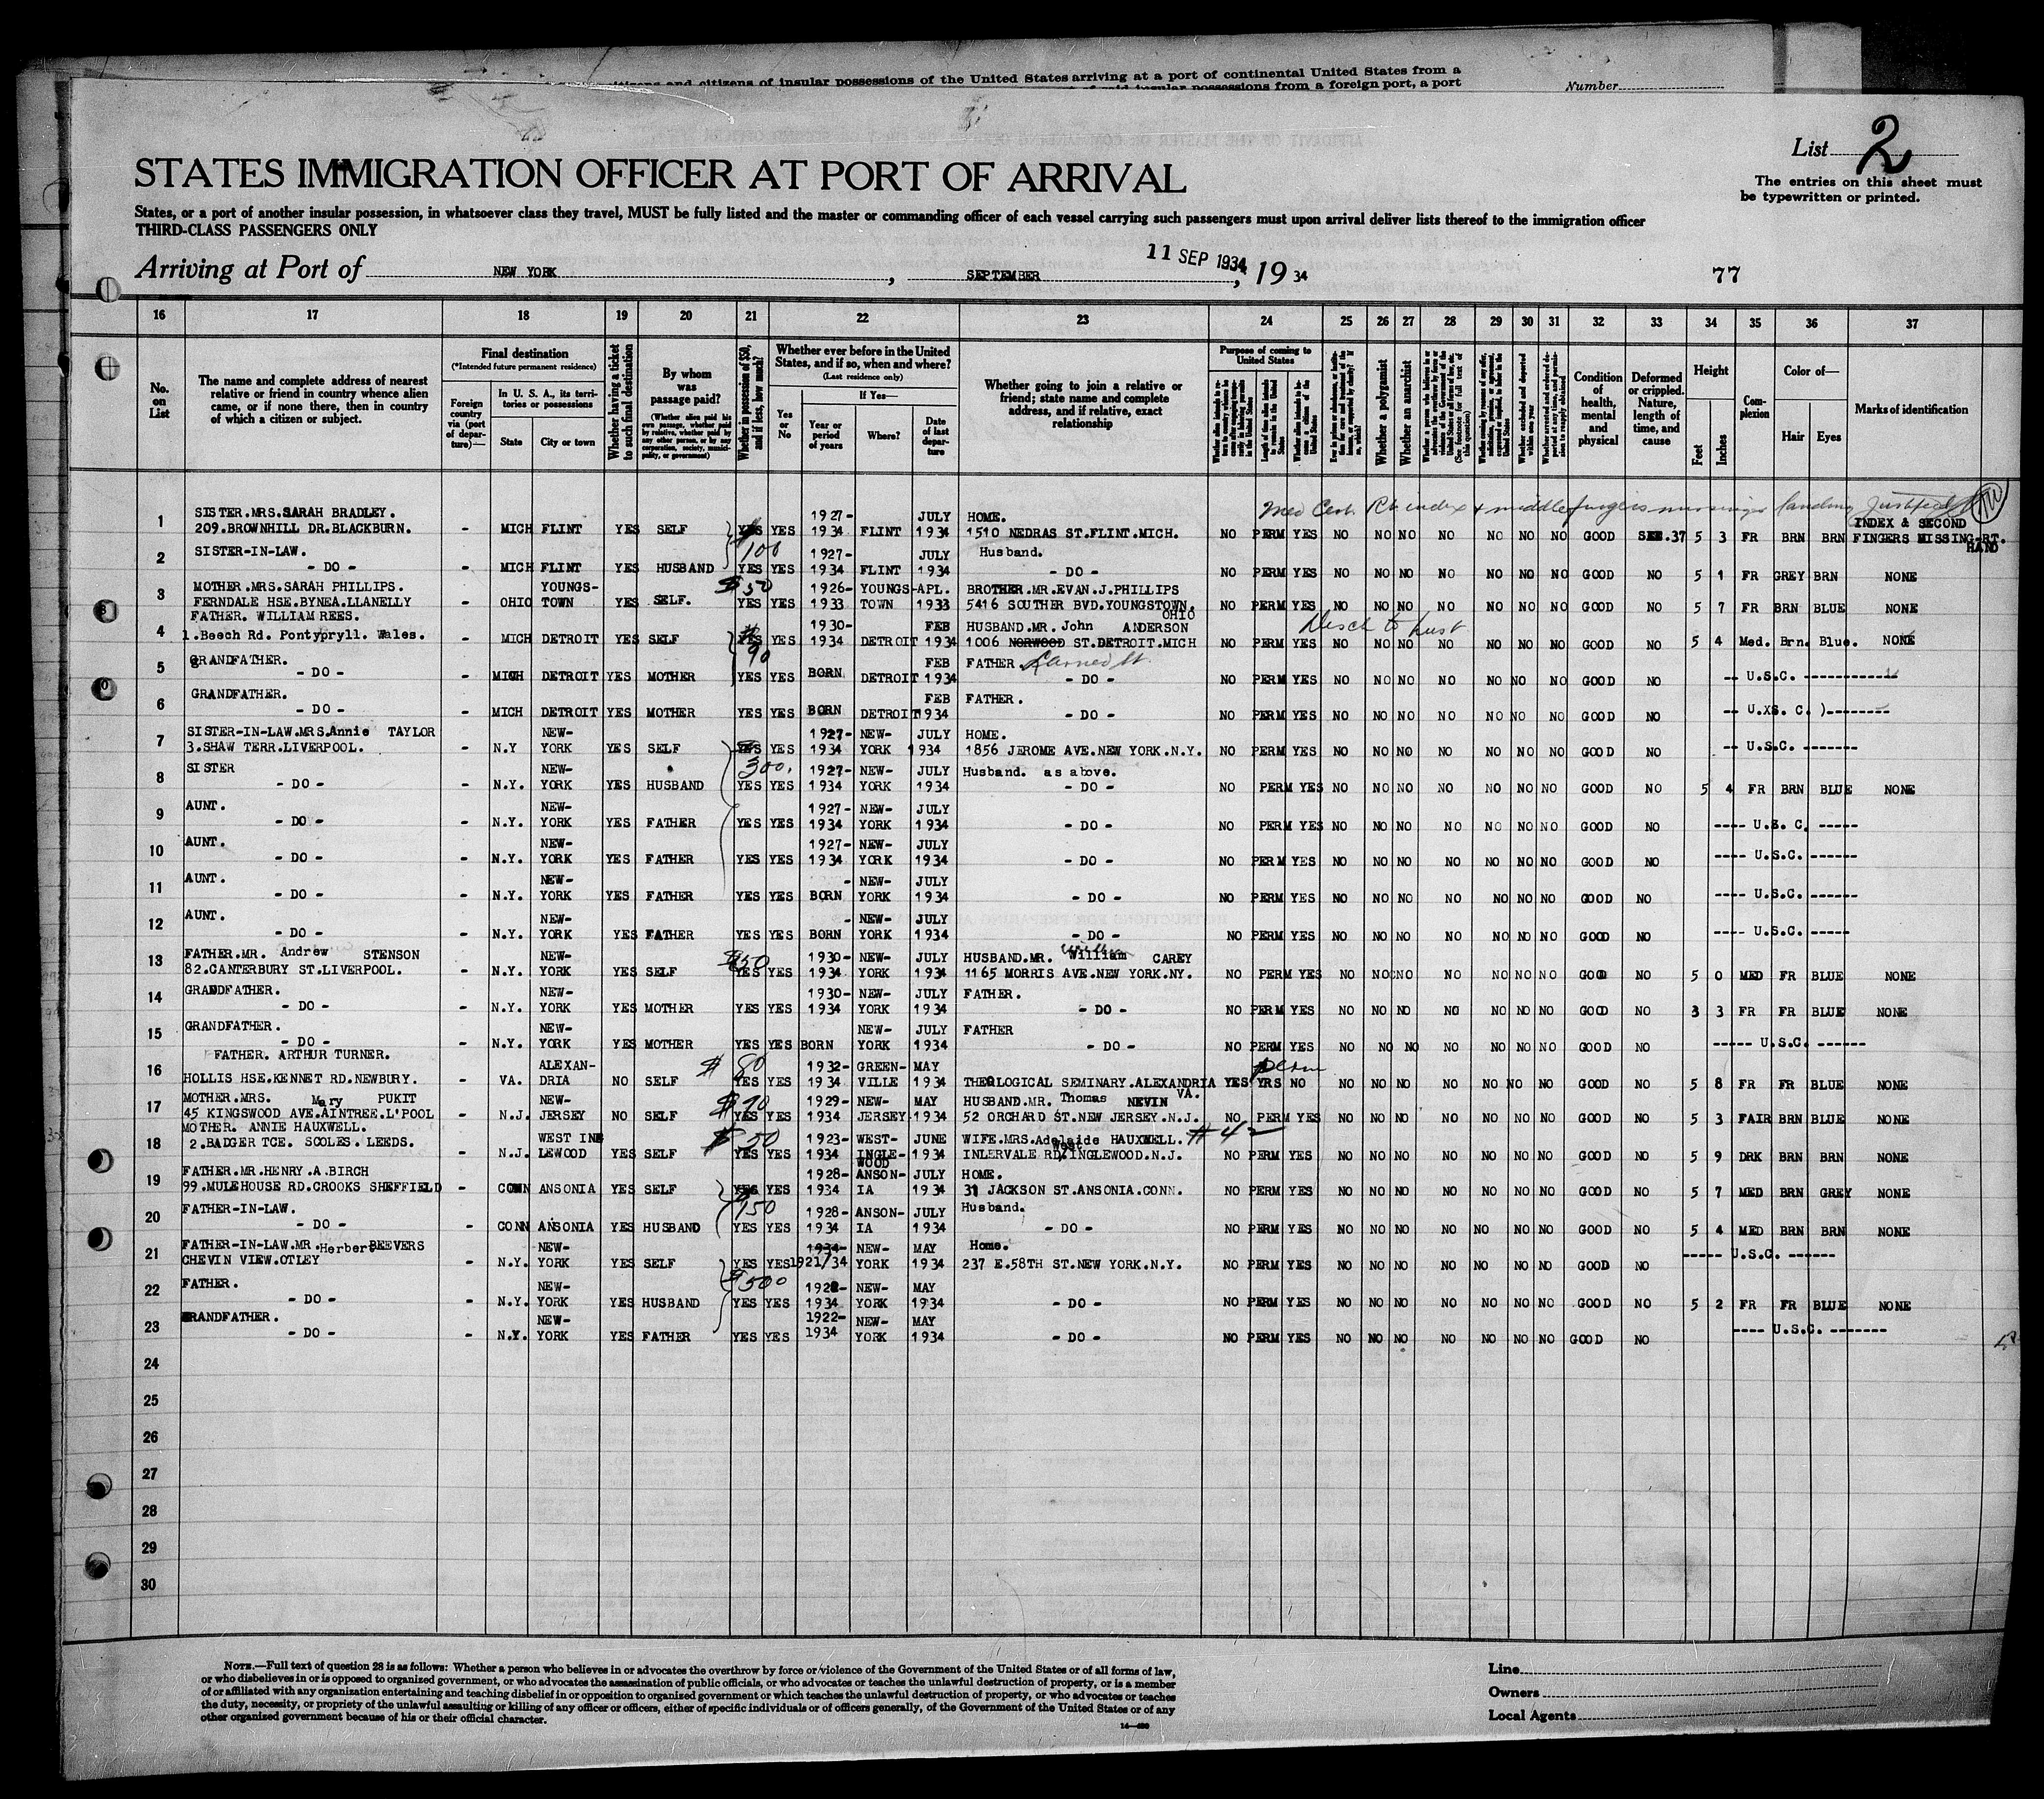 citizens and citizens of insular possessions of the United States arriving at a port of continental United States from a
of said insular possessions from a foreign port, a port
Number
List 2
The entries on this sheet must
be typewritten or printed.
STATES IMMIGRATION OFFICER AT PORT OF ARRIVAL
States, or a port of another insular possession, in whatsoever class they travel, MUST be fully listed and the master or commanding officer of each vessel carrying such passengers must upon arrival deliver lists thereof to the immigration officer
THIRD-CLASS PASSENGERS ONLY
Arriving at Port of NEW YORK, SEPTEMBER 11 SEP 1934, 1934 77
16 17 18 19 20 21 22 23 24 25 26 27 28 29 30 31 32 33 34 35 36 37
No. on List
The name and complete address of nearest relative or friend in country whence alien came, or if none there, then in country of which a citizen or subject.
Final destination
(*Intended future permanent residence)
Foreign country via (port of departure)—
In U. S. A., its territories or possessions
State City or town
Whether having a ticket to such final destination
By whom was passage paid?
(Whether alien paid his own passage, whether paid by relative, whether paid by any other person, or by any corporation, society, municipality, or government)
Whether in possession of $50, and if less, how much?
Whether ever before in the United States, and if so, when and where?
(Last residence only)
Yes or No
If Yes—
Year or period of years Where? Date of last departure
Whether going to join a relative or friend; state name and complete address, and if relative, exact relationship
Purpose of coming to United States
Length of time alien intends to remain in the United States
Whether alien intends to become a citizen of the United States
Whether a polygamist
Whether an anarchist
(See footnote for full text of this question)
Condition of health, mental and physical
Deformed or crippled. Nature, length of time, and cause
Height
Feet Inches
Complexion
Color of—
Hair Eyes
Marks of identification
Med Cert. Rt index & middle fingers missing landing justified
1 SISTER.MRS.SARAH BRADLEY. 1927- JULY HOME. INDEX & SECOND
209.BROWNHILL DR.BLACKBURN. - MICH FLINT YES SELF YES YES 1934 FLINT 1934 1510 NEDRAS ST.FLINT.MICH. NO PERM YES NO NO NO NO NO NO NO GOOD SEE.37 5 3 FR BRN BRN FINGERS MISSING-RT. HAND
$100
2 SISTER-IN-LAW. 1927- JULY Husband.
- DO - - MICH FLINT YES HUSBAND YES YES 1934 FLINT 1934 - DO - NO PERM YES NO NO NO NO NO NO NO GOOD NO 5 1 FR GREY BRN NONE
3 MOTHER.MRS.SARAH PHILLIPS. YOUNGS- $50 1926- YOUNGS- APL. BROTHER.MR.EVAN.J.PHILLIPS
FERNDALE HSE.BYNEA.LLANELLY - OHIO TOWN YES SELF. YES YES 1933 TOWN 1933 5416 SOUTHER BVD.YOUNGSTOWN. OHIO NO PERM YES NO NO NO NO NO NO NO GOOD NO 5 7 FR BRN BLUE NONE
4 FATHER. WILLIAM REES. 1930- FEB HUSBAND.MR. John ANDERSON
1.Beech Rd. Pontypryll. Wales. - MICH DETROIT YES SELF YES YES 1934 DETROIT 1934 1006 NORWOOD ST.DETROIT.MICH NO PERM YES NO NO NO NO NO NO NO GOOD NO 5 4 Med. Brn. Blue. NONE
$90
5 GRANDFATHER. FEB FATHER
- DO - - MICH DETROIT YES MOTHER YES YES BORN DETROIT 1934 - DO - NO PERM YES NO NO NO NO NO NO NO GOOD NO -- U.S.C. ------------
6 GRANDFATHER. FEB FATHER.
- DO - - MICH DETROIT YES MOTHER YES YES BORN DETROIT 1934 - DO - NO PERM YES NO NO NO NO NO NO NO GOOD NO -- U.XS. C. )--------
7 SISTER-IN-LAW.MRS.Annie TAYLOR NEW- 1927- NEW- JULY HOME.
3.SHAW TERR.LIVERPOOL. - N.Y YORK YES SELF YES YES 1934 YORK 1934 1856 JEROME AVE.NEW YORK.N.Y. NO PERM YES NO NO NO NO NO NO NO GOOD NO -- U.S.C. ------
300.
8 SISTER NEW- 1927- NEW- JULY Husband. as above.
- DO - - N.Y. YORK YES HUSBAND YES YES 1934 YORK 1934 - DO - NO PERM YES NO NO NO NO NO NO NO GOOD NO 5 4 FR BRN BLUE NONE
9 AUNT. NEW- 1927- NEW- JULY
- DO - - N.Y. YORK YES FATHER YES YES 1934 YORK 1934 - DO - NO PERM YES NO NO NO NO NO NO NO GOOD NO ---- U.S. C. -----
10 AUNT. NEW- 1927- NEW- JULY
- DO - - N.Y. YORK YES FATHER YES YES 1934 YORK 1934 - DO - NO PERM YES NO NO NO NO NO NO NO GOOD NO ---- U.S.C. -----
11 AUNT. NEW- - NEW- JULY
- DO - - N.Y. YORK YES FATHER YES YES BORN YORK 1934 - DO - NO PERM YES NO NO NO NO NO NO NO GOOD NO ---- U.S.C. -----
12 AUNT. NEW- - NEW- JULY
- DO - - N.Y. YORK YES FATHER YES YES BORN YORK 1934 - DO - NO PERM YES NO NO NO NO NO NO NO GOOD NO ---- U.S.C. -----
13 FATHER.MR. Andrew STENSON NEW- $50 1930- NEW- JULY HUSBAND.MR. William CAREY
82.CANTERBURY ST.LIVERPOOL. - N.Y. YORK YES SELF YES YES 1934 YORK 1934 1165 MORRIS AVE.NEW YORK.NY. NO PERM YES NO NO NO NO NO NO NO GOOD NO 5 0 MED FR BLUE NONE
14 GRANDFATHER. NEW- 1930- NEW- JULY FATHER.
- DO - - N.Y. YORK YES MOTHER YES YES 1934 YORK 1934 - DO - NO PERM YES NO NO NO NO NO NO NO GOOD NO 3 3 FR FR BLUE NONE
15 GRANDFATHER. NEW- NEW- JULY FATHER
- DO - - N.Y. YORK YES MOTHER YES YES BORN YORK 1934 - DO - NO PERM YES NO NO NO NO NO NO NO GOOD NO ----- U.S.C. ------
16 FATHER. ARTHUR TURNER. ALEXAN- $80 1932- GREEN- MAY perm
HOLLIS HSE.KENNET RD.NEWBURY. - VA. DRIA NO SELF YES YES 1934 VILLE 1934 THEOLOGICAL SEMINARY.ALEXANDRIA VA. YES YRS NO NO NO NO NO NO NO NO GOOD NO 5 8 FR FR BLUE NONE
17 MOTHER.MRS. Mary PUKIT NEW- 1929- NEW- MAY HUSBAND.MR. Thomas NEVIN
45 KINGSWOOD AVE.AINTREE.L'POOL - N.J. JERSEY NO SELF YES YES 1934 JERSEY 1934 52 ORCHARD ST.NEW JERSEY.N.J. NO PERM YES NO NO NO NO NO NO NO GOOD NO 5 3 FAIR BRN BLUE NONE
18 MOTHER. ANNIE HAUXWELL. WEST ING $50 1923- WEST- JUNE WIFE.MRS.Adelaide HAUXWELL. #42
2.BADGER TCE. SCOLES. LEEDS. - N.J. LEWOOD YES SELF YES YES 1934 INGLE- WOOD 1934 INLERVALE RD. West INGLEWOOD.N.J. NO PERM YES NO NO NO NO NO NO NO GOOD NO 5 9 DRK BRN BRN NONE
19 FATHER.MR.HENRY.A.BIRCH 1928- ANSON- JULY HOME.
99.MULEHOUSE RD.CROOKS SHEFFIELD - CONN ANSONIA YES SELF YES YES 1934 IA 1934 31 JACKSON ST.ANSONIA.CONN. NO PERM YES NO NO NO NO NO NO NO GOOD NO 5 7 MED BRN GREY NONE
$150
20 FATHER-IN-LAW. 1928- ANSON- JULY Husband.
- DO - - CONN ANSONIA YES HUSBAND YES YES 1934 IA 1934 - DO - NO PERM YES NO NO NO NO NO NO NO GOOD NO 5 4 MED BRN BRN NONE
21 FATHER-IN-LAW.MR.Herbert BEEVERS NEW- 1934- NEW- MAY Home.
CHEVIN VIEW.OTLEY - N.Y. YORK YES SELF YES YES 1921/34 YORK 1934 237 E.58TH ST.NEW YORK.N.Y. NO PERM YES NO NO NO NO NO NO NO GOOD NO ----- U.S.C. ------
$500
22 FATHER. NEW- 1928- NEW- MAY
- DO - - N.Y. YORK YES HUSBAND YES YES 1934 YORK 1934 - DO - NO PERM YES NO NO NO NO NO NO NO GOOD NO 5 2 FR FR BLUE NONE
23 GRANDFATHER. NEW- 1922- NEW- MAY
- DO - - N.Y. YORK YES FATHER YES YES 1934 YORK 1934 - DO - NO PERM YES NO NO NO NO NO NO NO GOOD NO ---- U.S.C. -------
24
25
26
27
28
29
30
NOTE.—Full text of question 28 is as follows: Whether a person who believes in or advocates the overthrow by force or violence of the Government of the United States or of all forms of law,
or who disbelieves in or is opposed to organized government, or who advocates the assassination of public officials, or who advocates or teaches the unlawful destruction of property, or is a member
of or affiliated with any organization entertaining and teaching disbelief in or opposition to organized government or which teaches the unlawful destruction of property, or who advocates or teaches
the duty, necessity, or propriety of the unlawful assaulting or killing of any officer or officers, either of specific individuals or of officers generally, of the Government of the United States or of any
other organized government because of his or their official character.
Line
Owners
Local Agents